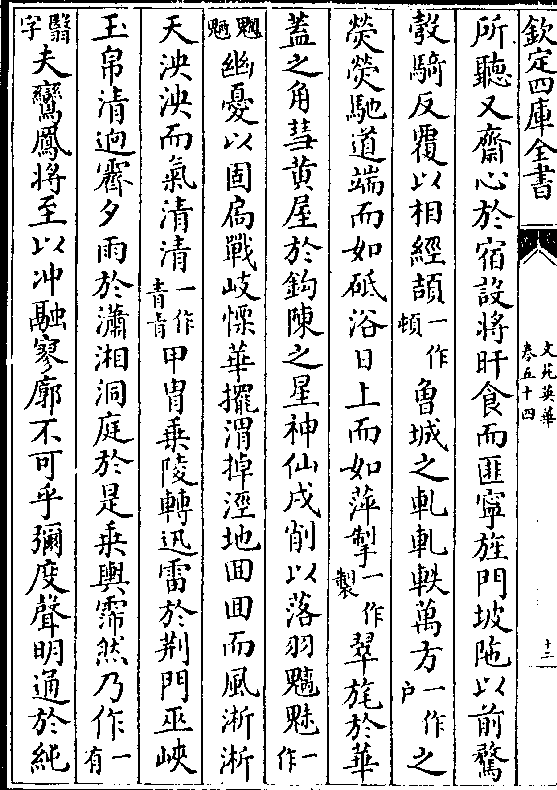 欽定四庫全書
文苑英華
卷五十四
十二
所聽又齋心於宿設將旰食而匪寧旌門坡陁以前騖
彀騎反覆以相經頡一作頓魯城之軋軋軼萬方一作户之
熒熒馳道端而如砥浴日上而如萍掣一作製翠旄於華
蓋之角彗黄屋於鈎陳之星神仙戍削以落羽魑魅一作
魍魎幽憂以固扃戰岐慄華擺渭掉涇地回回而風淅淅
天泱泱而氣清清一作青青甲胄乗陵轉迅雷於荆門巫峽
玉帛清迥霽夕雨於瀟湘洞庭於是乗輿霈然乃作一有
翳字夫鸞鳳将至以冲融寥廓不可乎彌度聲明通於純